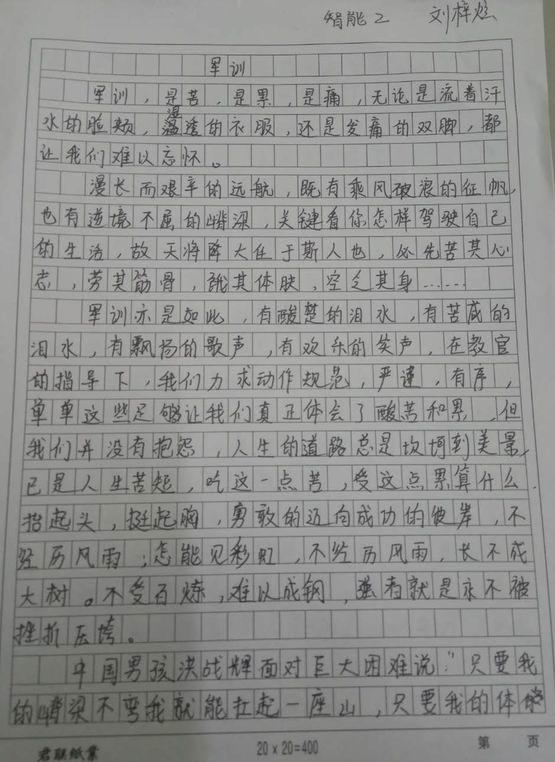 智能2 刘梓炫
军训
军训，是苦，是累，是痛，无论是流着汗
水的脸颊，湿透的衣服，还是发痛的双脚，都
让我们难以忘怀。
漫长而艰辛的远航，既有乘风破浪的征帆，
也有逆境不屈的嵴梁，关键看你怎样驾驶自己
的生活，故天将降大任于斯人也，必先苦其心
志，劳其筋骨，饿其体肤，空乏其身……
军训亦是如此，有酸楚的泪水，有苦咸的
泪水，有飘扬的歌声，有欢乐的笑声，在教官
的指导下，我们力求动作规范，严谨，有序，
单单这些足够让我们真正体会了酸苦和累，但
我们并没有抱怨，人生的道路总是坎坷到美景，
已是人生苦短，吃这一点苦，受这点累算什么，
抬起头，挺起胸，勇敢的迈向成功的彼岸，不
经历风雨；怎能见彩虹，不经历风雨，长不成
大树。不受百炼，难以成钢，强者就是永不被
挫折压垮。
中国男孩洪战辉面对巨大困难说："只要我
的嵴梁不弯我就能扛起一座山，只要我的体
君联纸业 20×20=400 第 页